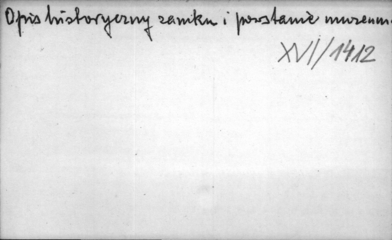 Opis historyczny zamku i powstanie muzeum
XVI/1412